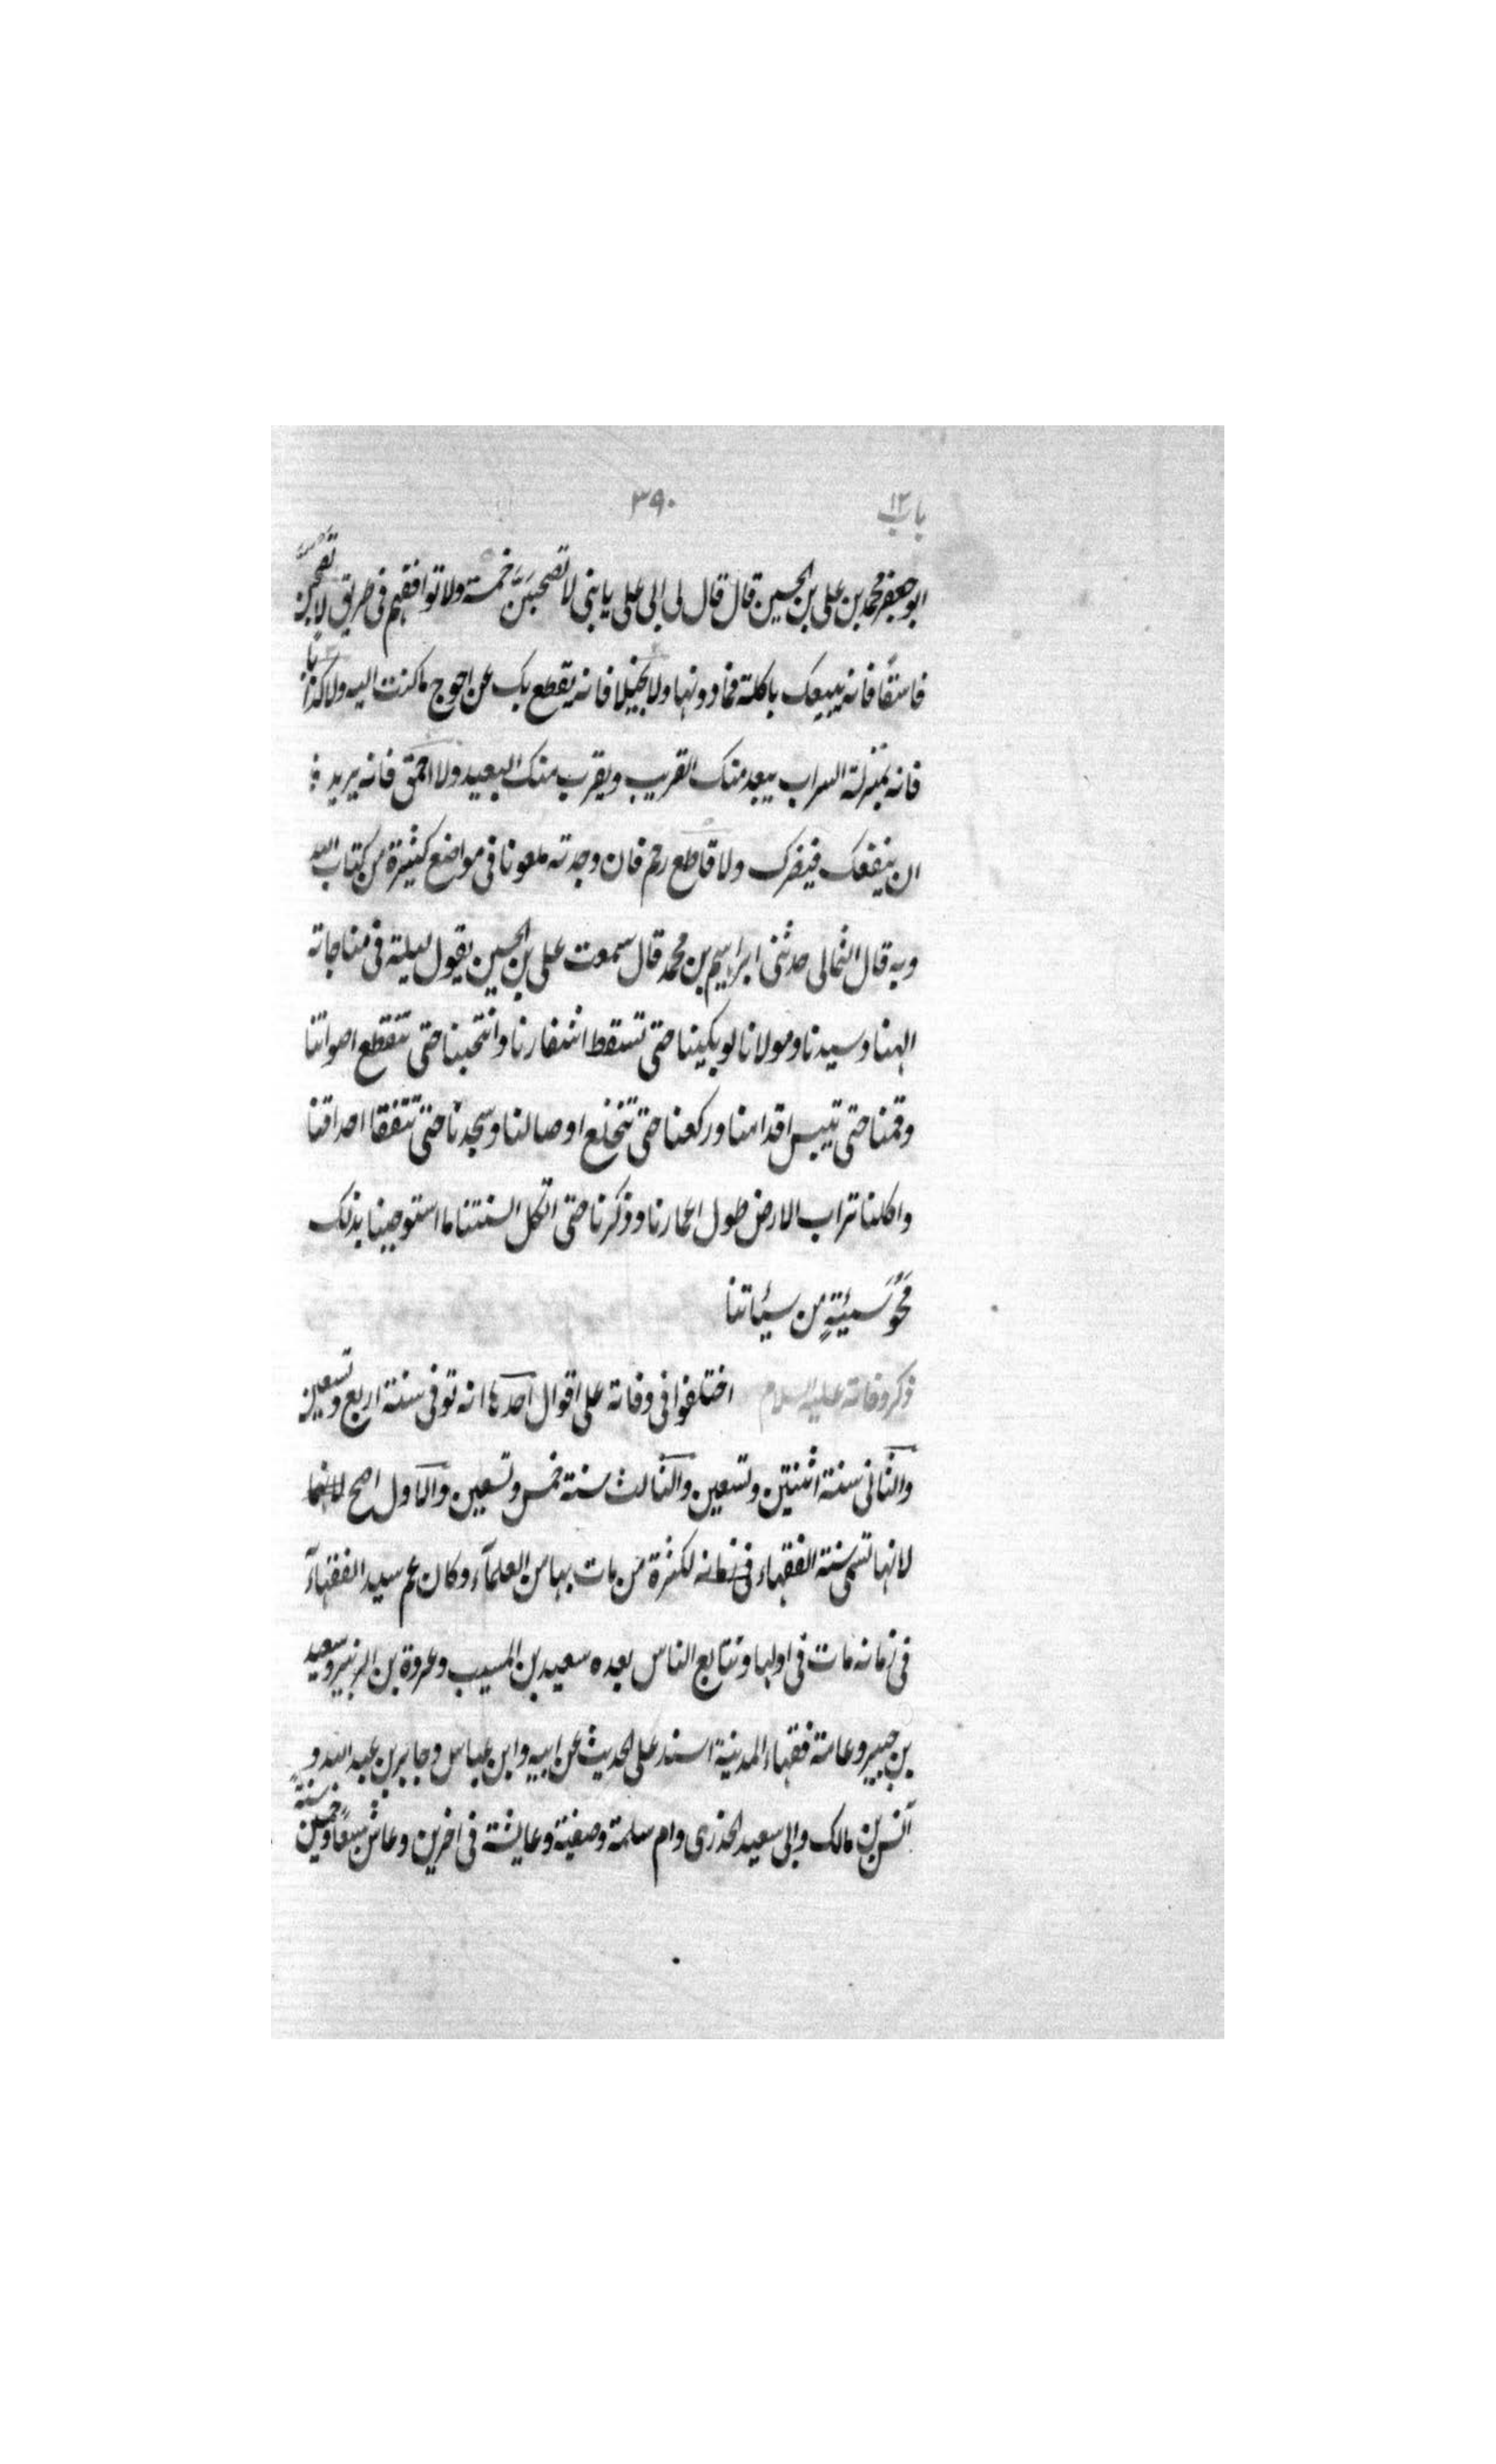 باب ١٢ ٣٩٠
ابو جعفر محمد بن على بن الحسين قال قال لى ابى على يا بنى لا تصحبنّ خمسة ولا توافقهم فى طريق لا تصحبنّ
فاسقًا فانه يبيعك باكلة فما دونها ولا بخيلا فانه يقطع بك عن احوج ما كنت اليه ولا كذابًا
فانه بمنزلة السراب يبعد منك القريب ويقرب منك البعيد ولا احمق فانه يريد
ان ينفعك فيضرك ولا قاطع رحم فان وجدته ملعونا فى مواضع كثيرة من كتاب الله
وبه قال الثمالى حدثنى ابراهيم بن محمد قال سمعت على بن الحسين يقول ليلة فى مناجاته
الهنا وسيدنا ومولانا لو بكينا حتى تسقط اشفارنا وانتحبنا حتى تتقطع اصواتنا
وقمنا حتى تيبس اقدامنا وركعنا حتى تتخلع اوصالنا وسجدنا حتى تتفقا احداقنا
واكلنا تراب الارض طول اعمارنا وذكرنا حتى تكل السنتنا ما استوجبنا بذلك
مَحْوَ سيئةٍ من سيئاتنا
ذكر وفاته عليه السلام اختلفوا فى وفاته على اقوال احدها انه توفى سنة اربع وتسعين
والثانى سنة اثنتين وتسعين والثالث سنة خمس وتسعين والاول اصح
لانها تسمى سنة الفقهاء لكثرة من مات بها من العلمآء وكان عم سيد الفقهآء
فى زمانه مات فى اولها وتتابع الناس بعده سعيد بن المسيب وعروة بن الزبير وسعيد
بن جبير وعامة فقهاء المدينة اسند على الحديث عن ابيه وابن عباس وجابر بن عبد الله و
انس بن مالك وابى سعيد الخدرى وام سلمة وصفية وعايشة فى اخرين وعاش سبعًا وخمسين سنة